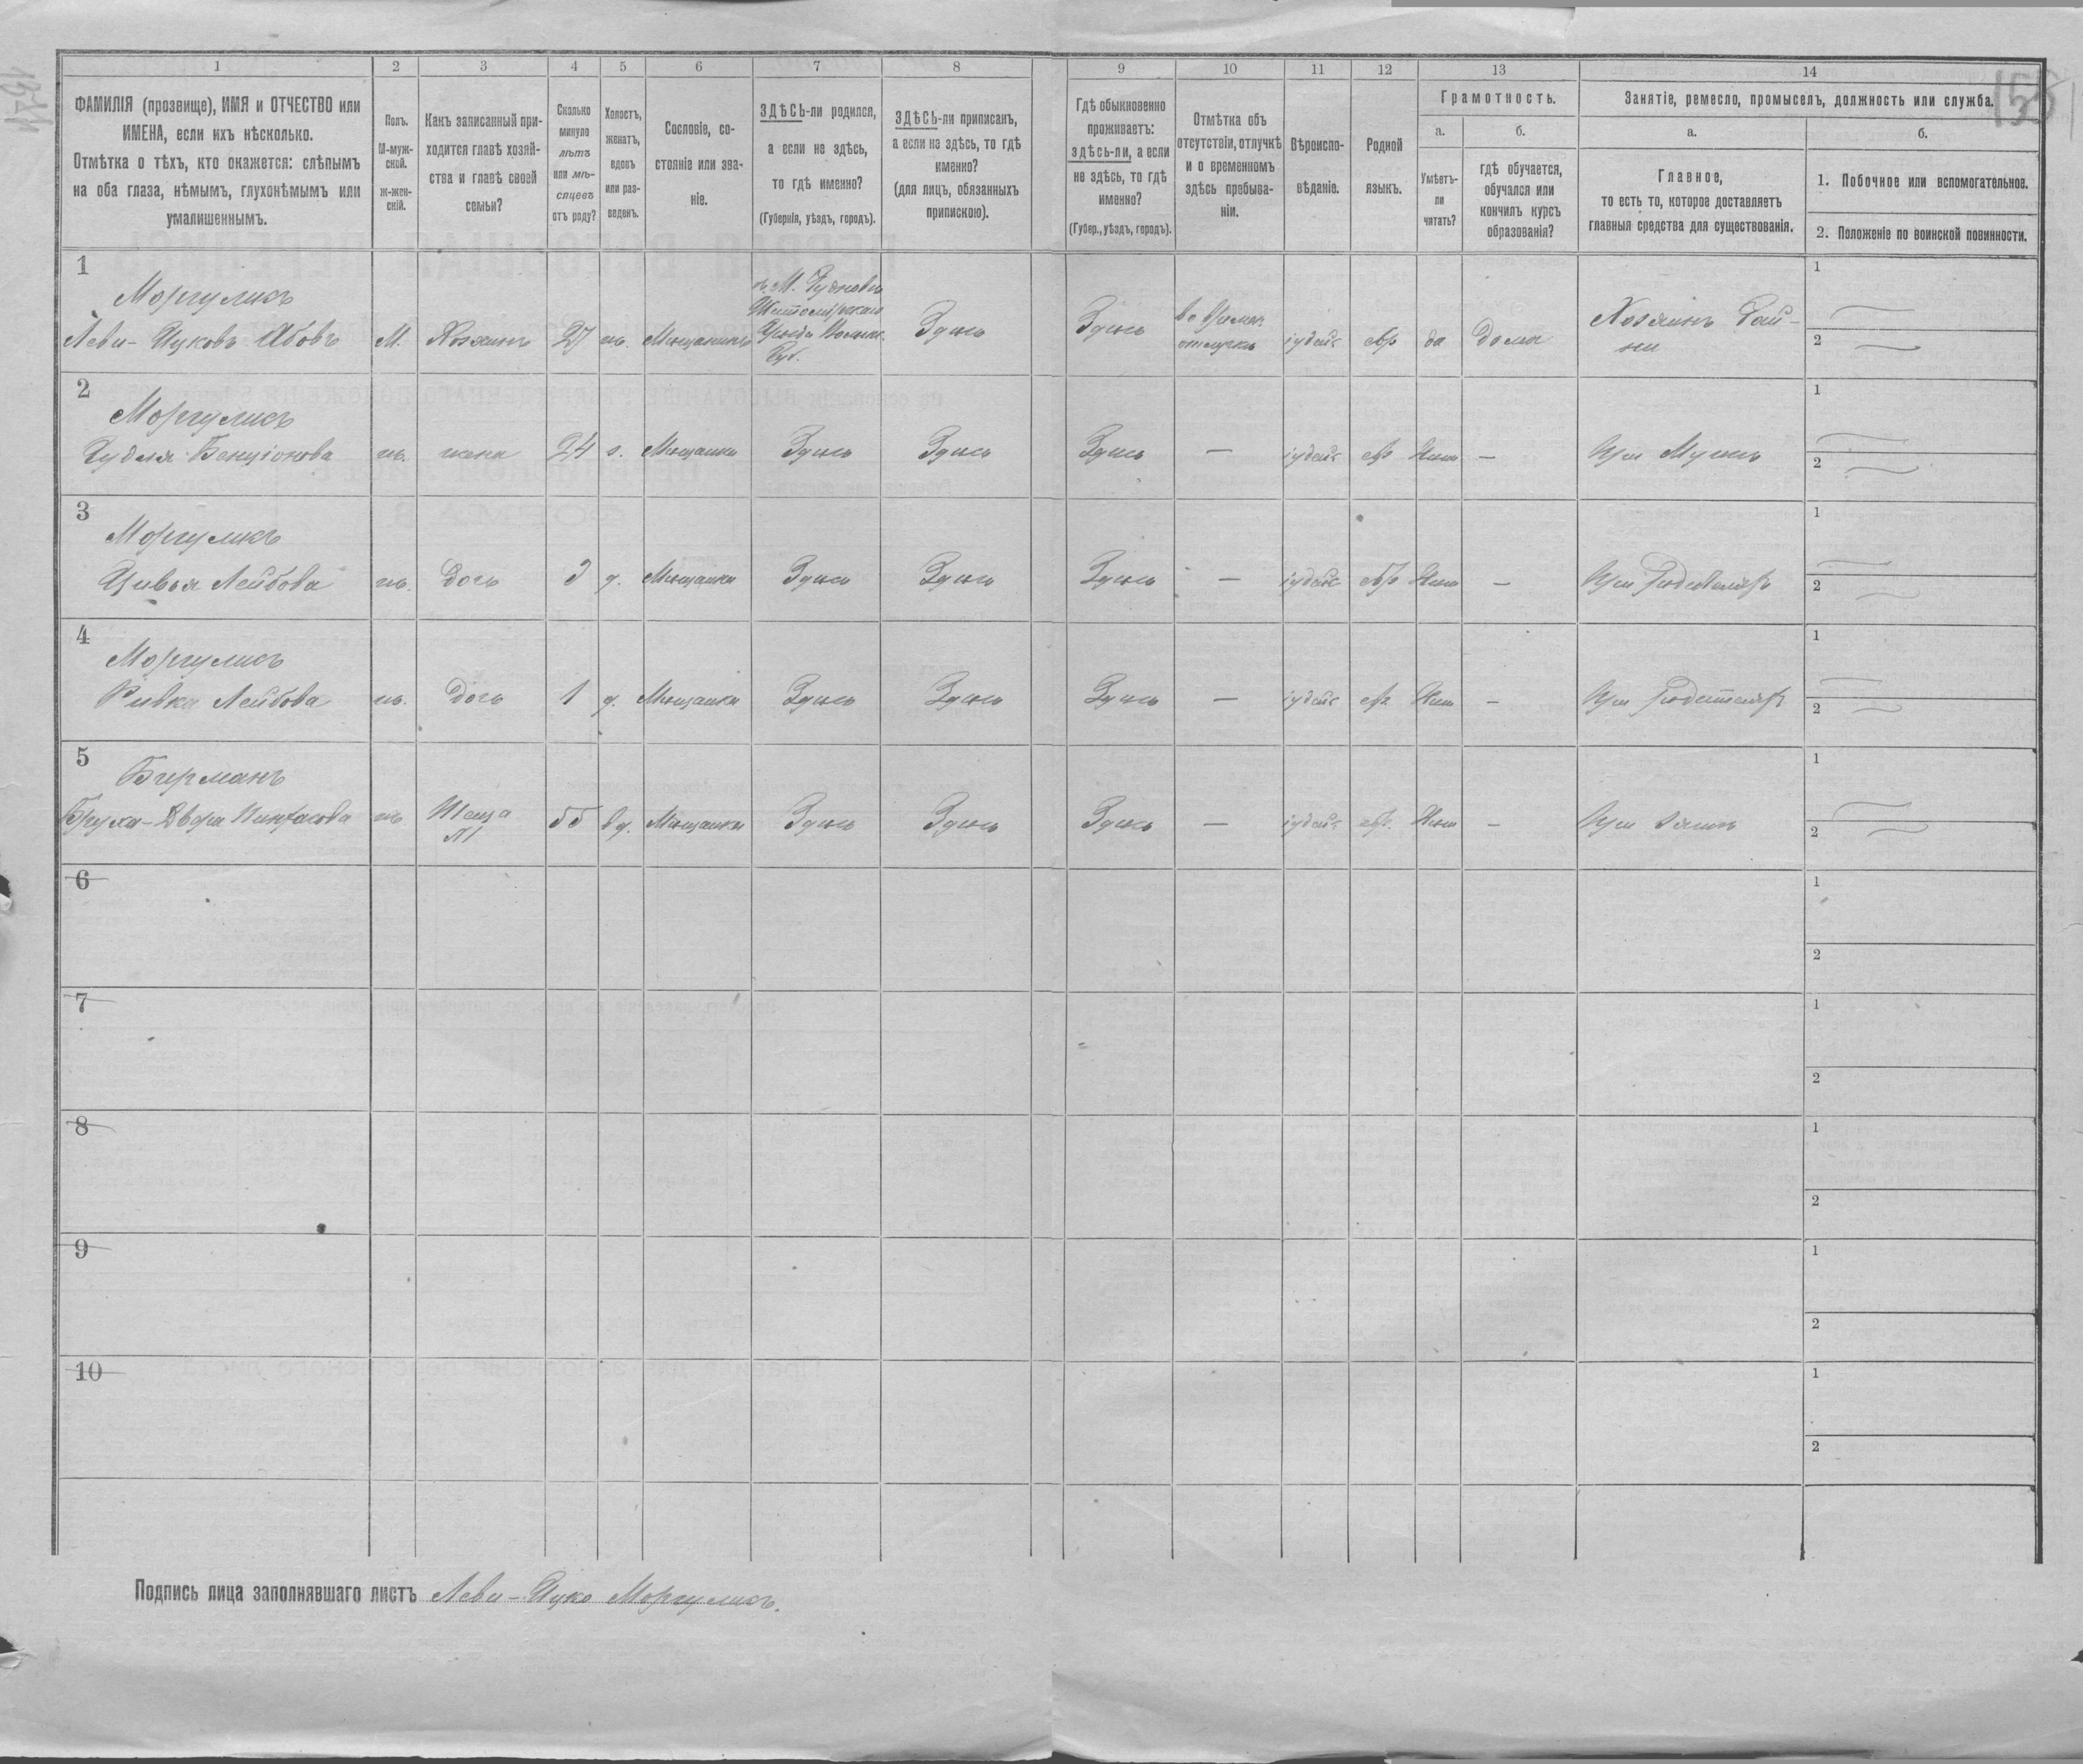 1 2 3 4 5 6 7 8 9 10 11 12 13 14
ФАМИЛІЯ (прозвище), ИМЯ и ОТЧЕСТВО или
ИМЕНА, если ихъ нѣсколько.
Отмѣтка о тѣхъ, кто окажется: слѣпымъ
на оба глаза, нѣмымъ, глухонѣмымъ или
умалишеннымъ.
Полъ.
М-муж-
ской.
ж-жен-
скій.
Какъ записанный при-
ходится главѣ хозяй-
ства и главѣ своей
семьи?
Сколько
минуло
лѣтъ
или мѣ-
сяцевъ
отъ роду?
Холостъ,
женатъ,
вдовъ
или раз-
веденъ.
Сословіе, со-
стояніе или зва-
ніе.
ЗДѢСЬ-ли родился,
а если не здѣсь,
то гдѣ именно?
(Губернія, уѣздъ, городъ).
ЗДѢСЬ-ли приписанъ,
а если не здѣсь, то гдѣ
именно?
(для лицъ, обязанныхъ
припискою).
Гдѣ обыкновенно
проживаетъ:
здѣсь-ли, а если
не здѣсь, то гдѣ
именно?
(Губер., уѣздъ, городъ).
Отмѣтка объ
отсутствіи, отлучкѣ
и о временномъ
здѣсь пребыва-
ніи.
Вѣроиспо-
вѣданіе.
Родной
языкъ.
Грамотность.
а.
Умѣетъ-
ли
читать?
б.
гдѣ обучается,
обучался или
кончилъ курсъ
образованія?
Занятіе, ремесло, промыселъ, должность или служба.
а.
Главное,
то есть то, которое доставляетъ
главныя средства для существованія.
б.
1. Побочное или вспомогательное.
2. Положеніе по воинской повинности.
1
Моргулисъ
Леви-Ицковъ Абовъ М. Хозяинъ 27 ж. Мещанинъ
Житомірскаго
Уѣзда Волынс.
Губ.
Здѣсь Здѣсь
отлучкѣ
іудейс евр да дома Хозяинъ
1
2
2
Моргулисъ
Бенціонова ж. жена 24 з. Мещанка Здѣсь Здѣсь Здѣсь — іудейс евр Нѣтъ — При Мужѣ
1
2
3
Моргулисъ
Цивья Лейбова ж. Дочь 3 д. Мещанка Здѣсь Здѣсь Здѣсь — іудейс евр Нѣтъ — При Родителяхъ
1
2
4
Моргулисъ
Ривка Лейбова ж. Дочь 1 д. Мещанка Здѣсь Здѣсь Здѣсь — іудейс евр. Нѣтъ — При Родителяхъ
1
2
5
Берманъ
Бруха-Двойра Пинхасова ж Теща 55 вд. Мещанка Здѣсь Здѣсь Здѣсь — іудейс евр. Нѣтъ — При зятѣ
1
2
6
1
2
7
1
2
8
1
2
9
1
2
10
1
2
Подпись лица заполнявшаго листъ Леви-Ицко Моргулисъ.